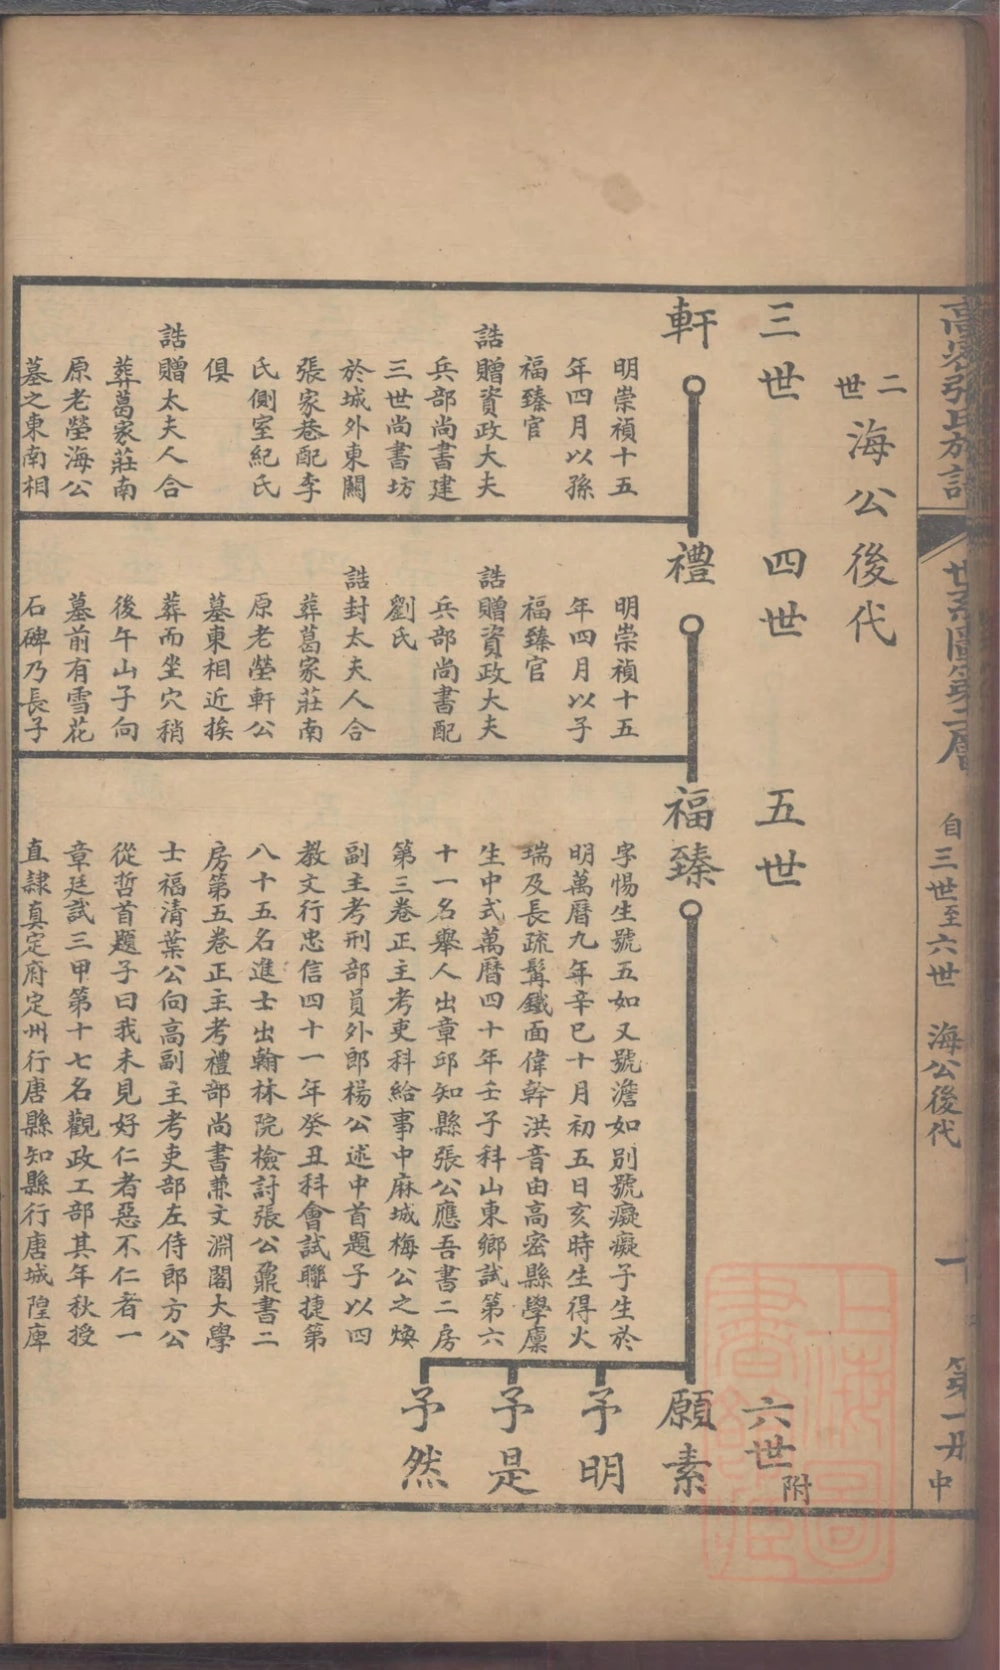 高密張氏族譜
世系圖第二層
自三世至六世　海公後代
一
第一册中
二世海公後代
三世
軒
明崇禎十五
年四月以孫
福臻官
誥贈資政大夫
兵部尚書建
三世尚書坊
於城外東關
張家巷配李
氏側室紀氏
俱
誥贈太夫人合
葬葛家莊南
原老塋海公
墓之東南相
四世
禮
明崇禎十五
年四月以子
福臻官
誥贈資政大夫
兵部尚書配
劉氏
誥封太夫人合
葬葛家莊南
原老塋軒公
墓東相近挨
葬而坐穴稍
後午山子向
墓前有雪花
石碑乃長子
五世
福臻
字惕生號五如又號澹如別號癡癡子生於
明萬曆九年辛巳十月初五日亥時生得火
瑞及長疏髯鐵面偉幹洪音由高密縣學廩
生中式萬曆四十年壬子科山東鄉試第六
十一名舉人出章邱知縣張公應吾書二房
第三卷正主考吏科給事中麻城梅公之煥
副主考刑部員外郎楊公述中首題子以四
教文行忠信四十一年癸丑科會試聯捷第
八十五名進士出翰林院檢討張公鼐書二
房第五卷正主考禮部尚書兼文淵閣大學
士福清葉公向高副主考吏部左侍郎方公
從哲首題子曰我未見好仁者惡不仁者一
章廷試三甲第十七名觀政工部其年秋授
直隸真定府定州行唐縣知縣行唐城隍庫
六世附
願素
予明
予是
予然
上海圖書館藏